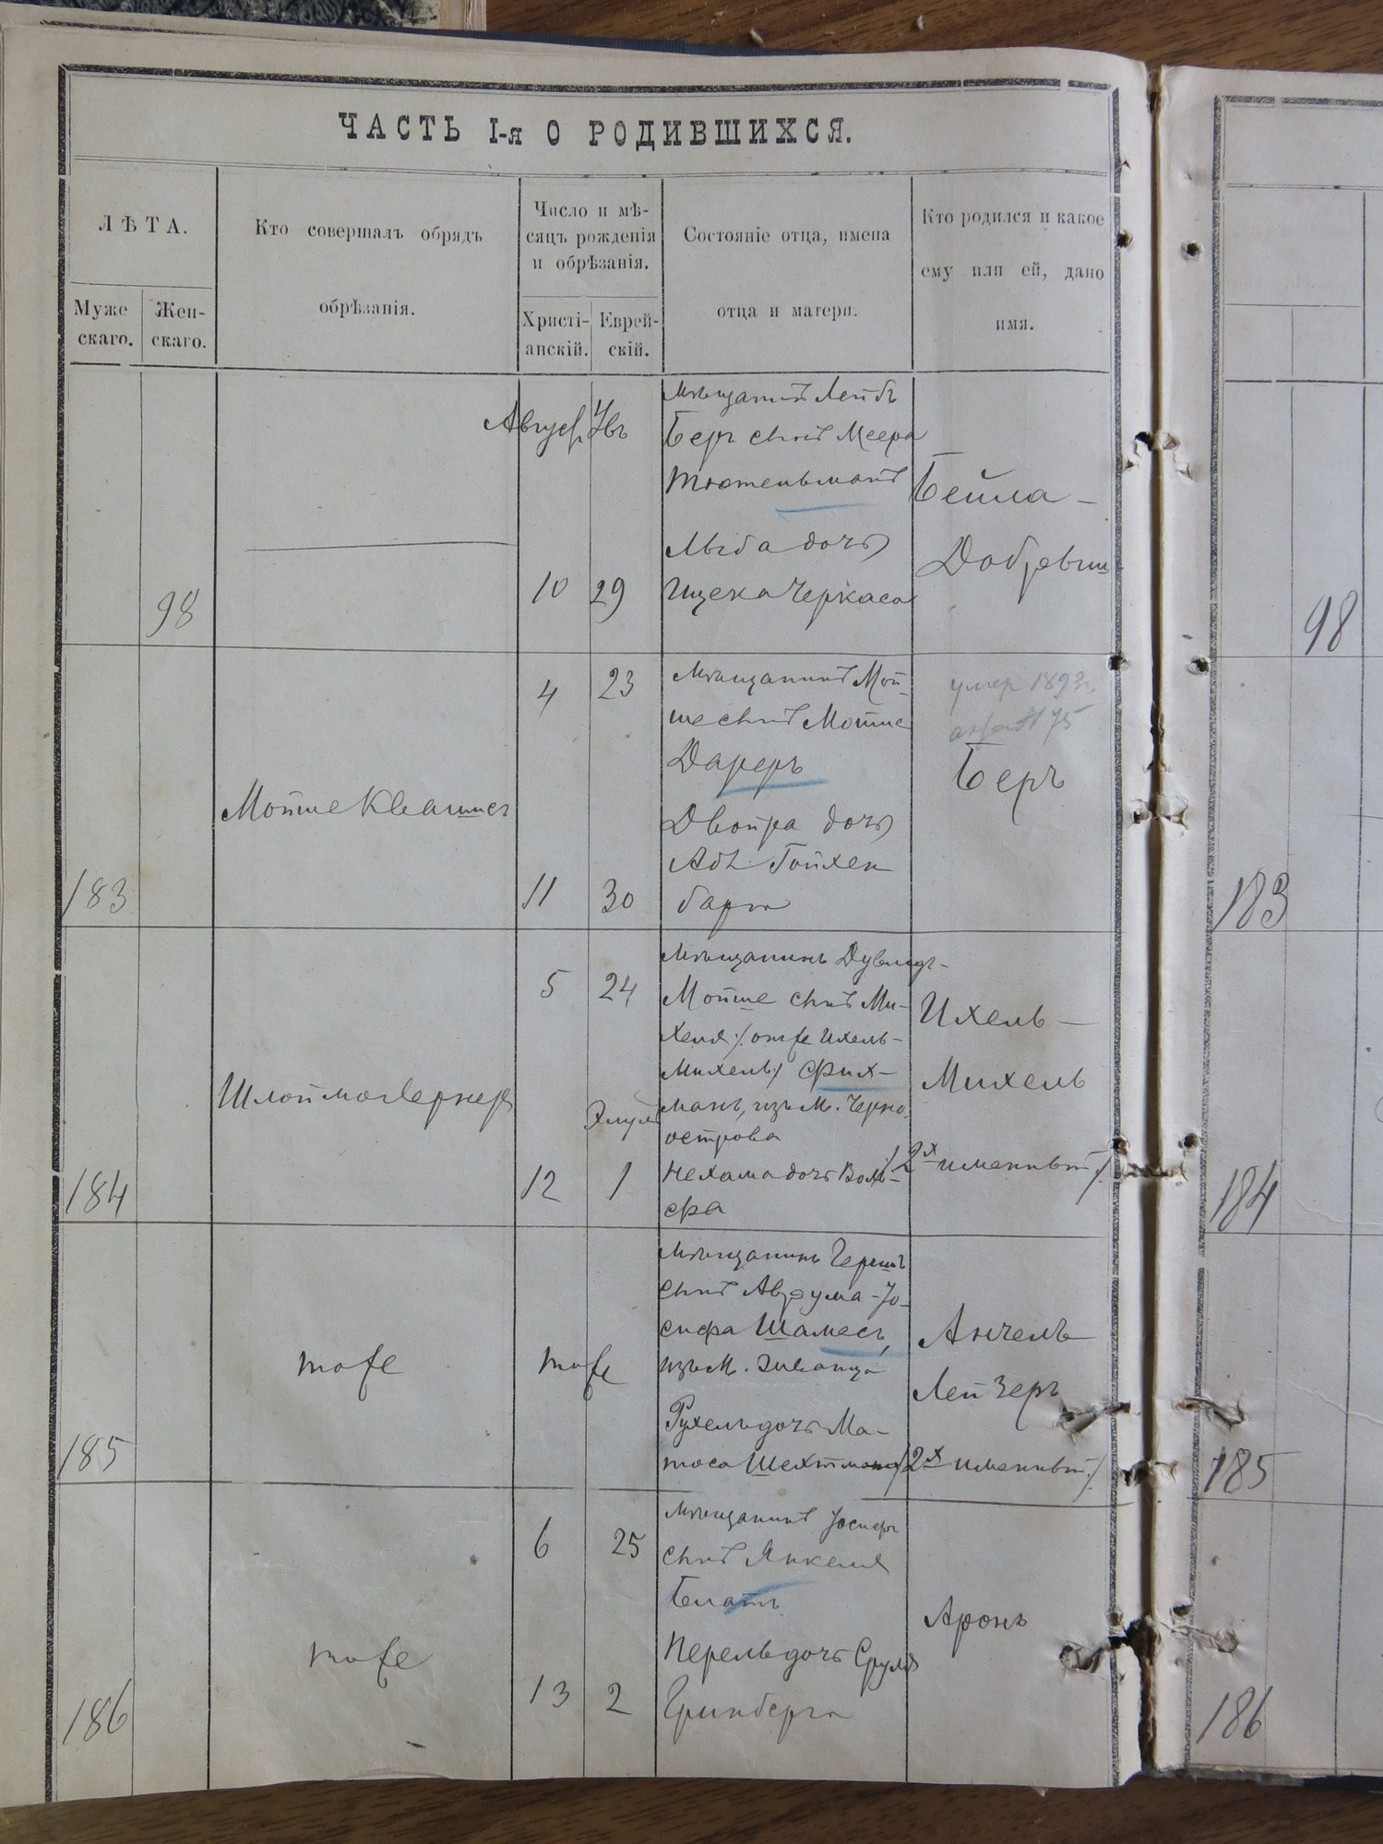 ЧАСТЬ I-я О РОДИВШИХСЯ.
ЛѢТА.
Муже
скаго.
Жен-
скаго.
Кто совершалъ обрядъ
обрѣзанія.
Число и мѣ-
сяцъ рожденія
и обрѣзанія.
Христі-
анскій.
Еврей-
скій.
Состояніе отца, имена
отца и матери.
Кто родился и какое
ему или ей, дано
имя.
98
Август Авъ
10 29
мѣщанинъ Лейбъ
Беръ сынъ Меера
Тютельманъ
дочь
Ицека Черкаса
Бейла -
Добревиш
98
183
Мойше Квашнеръ
4 23
11 30
Мѣщанинъ Мой-
ше сынъ Мойше
Дареръ
Двойра дочь
Абъ Гойхен
барга
умер 1893г
75
Беръ
183
184
Шлойма Лернеръ
5 24
Элулъ
12 1
Мѣщанинъ Дувидъ-
Мойше сынъ Ми-
хеля /: онже Ихель-
Михель:/ Фих-
манъ, изъ м. Черно-
острова
Нехама дочь Воль-
фа
Ихель -
Михель
/2х именный/
184
185
тоже
тоже
Мѣщанинъ Гершъ
сынъ Аврума-Іо-
сифа Шамесъ,
изъ м. Жванца
Рухель дочь Ма-
тоса Шехтмана
Анчель
Лейзеръ
/2х именный/
185
186
тоже
6 25
13 2
Мѣщанинъ Іосифъ
сынъ Янкеля
Блатъ
Перель дочь Сруля
Гринберга
Аронъ
186